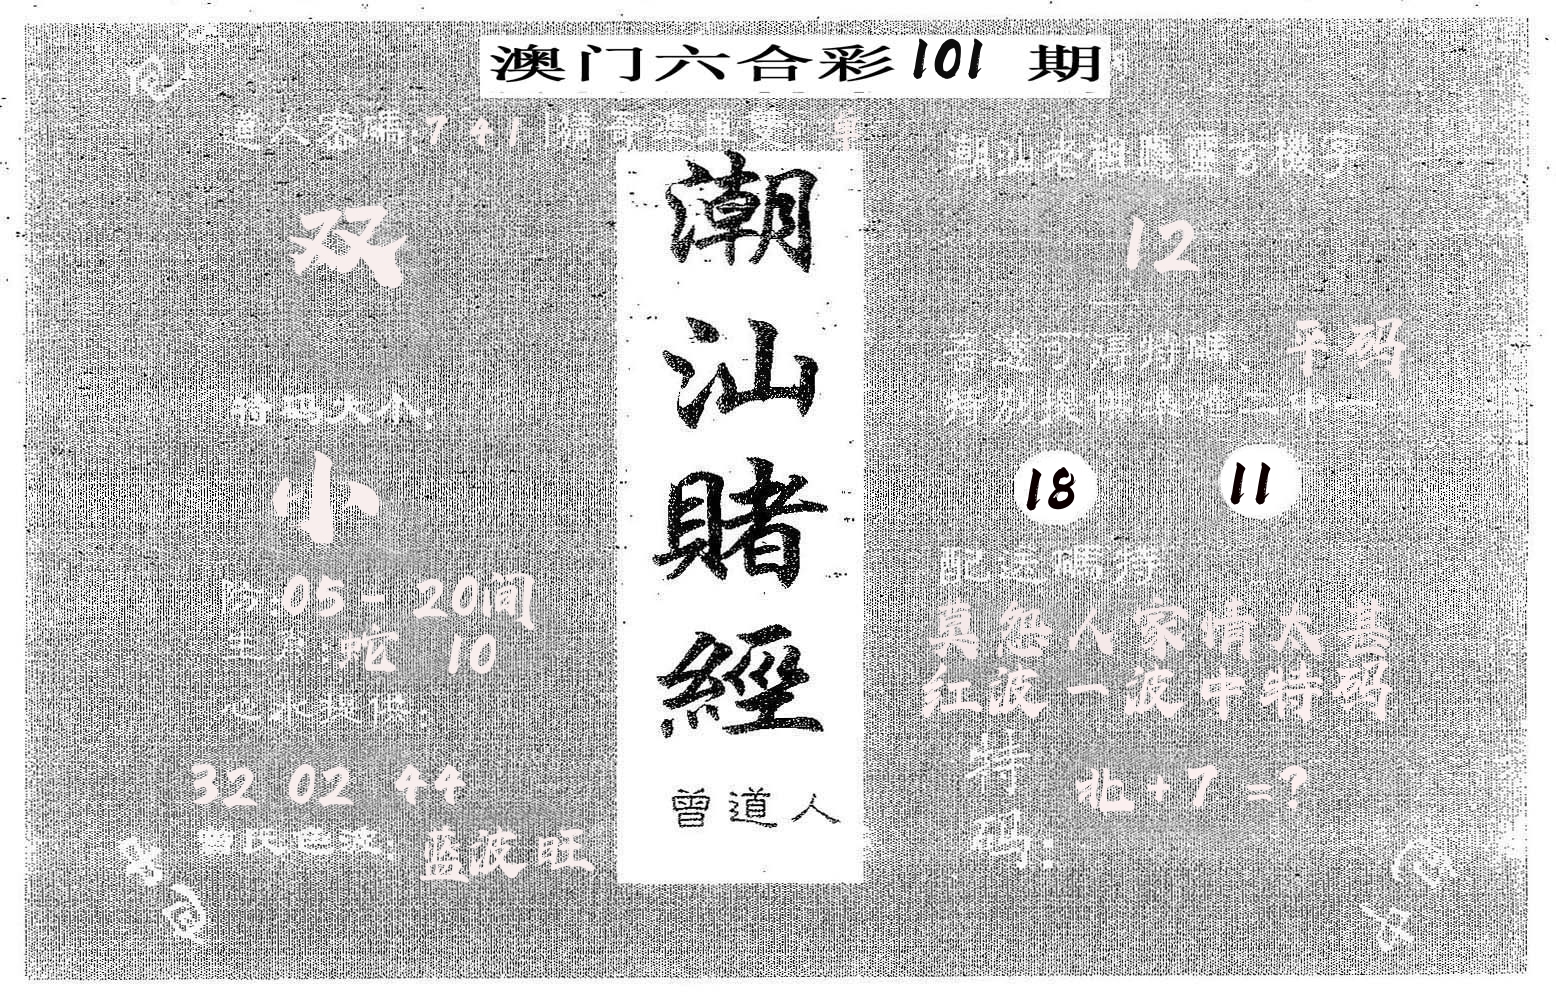 澳门六合彩101 期
道人密碼:7 41
双
特码大小:
小
防:05 - 20间
生肖:蛇 10
心水提供:
32 02 44
曾氏色波: 蓝波旺
潮汕賭經
曾道人
潮汕老祖應靈古機字
12
平码
18 11
配送碼特
莫怨人家情太甚
红波一波中特码
特码:
北+7 =?